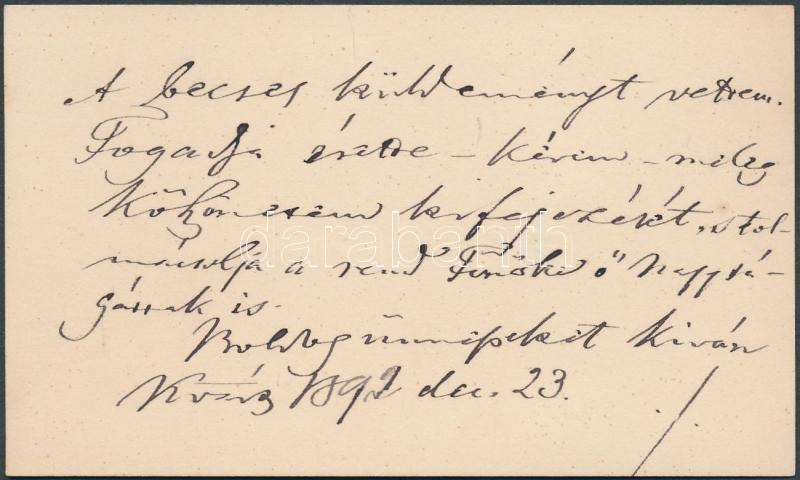 A becses küldeményt vettem.
Fogadja érette – kérem – meleg
köszönetem kifejezését, s tol-
mácsolja a rend Főnöke ő Nagysá-
gának is.
Boldog ünnepeket kiván
Kvár 189 dec. 23.
darabanth